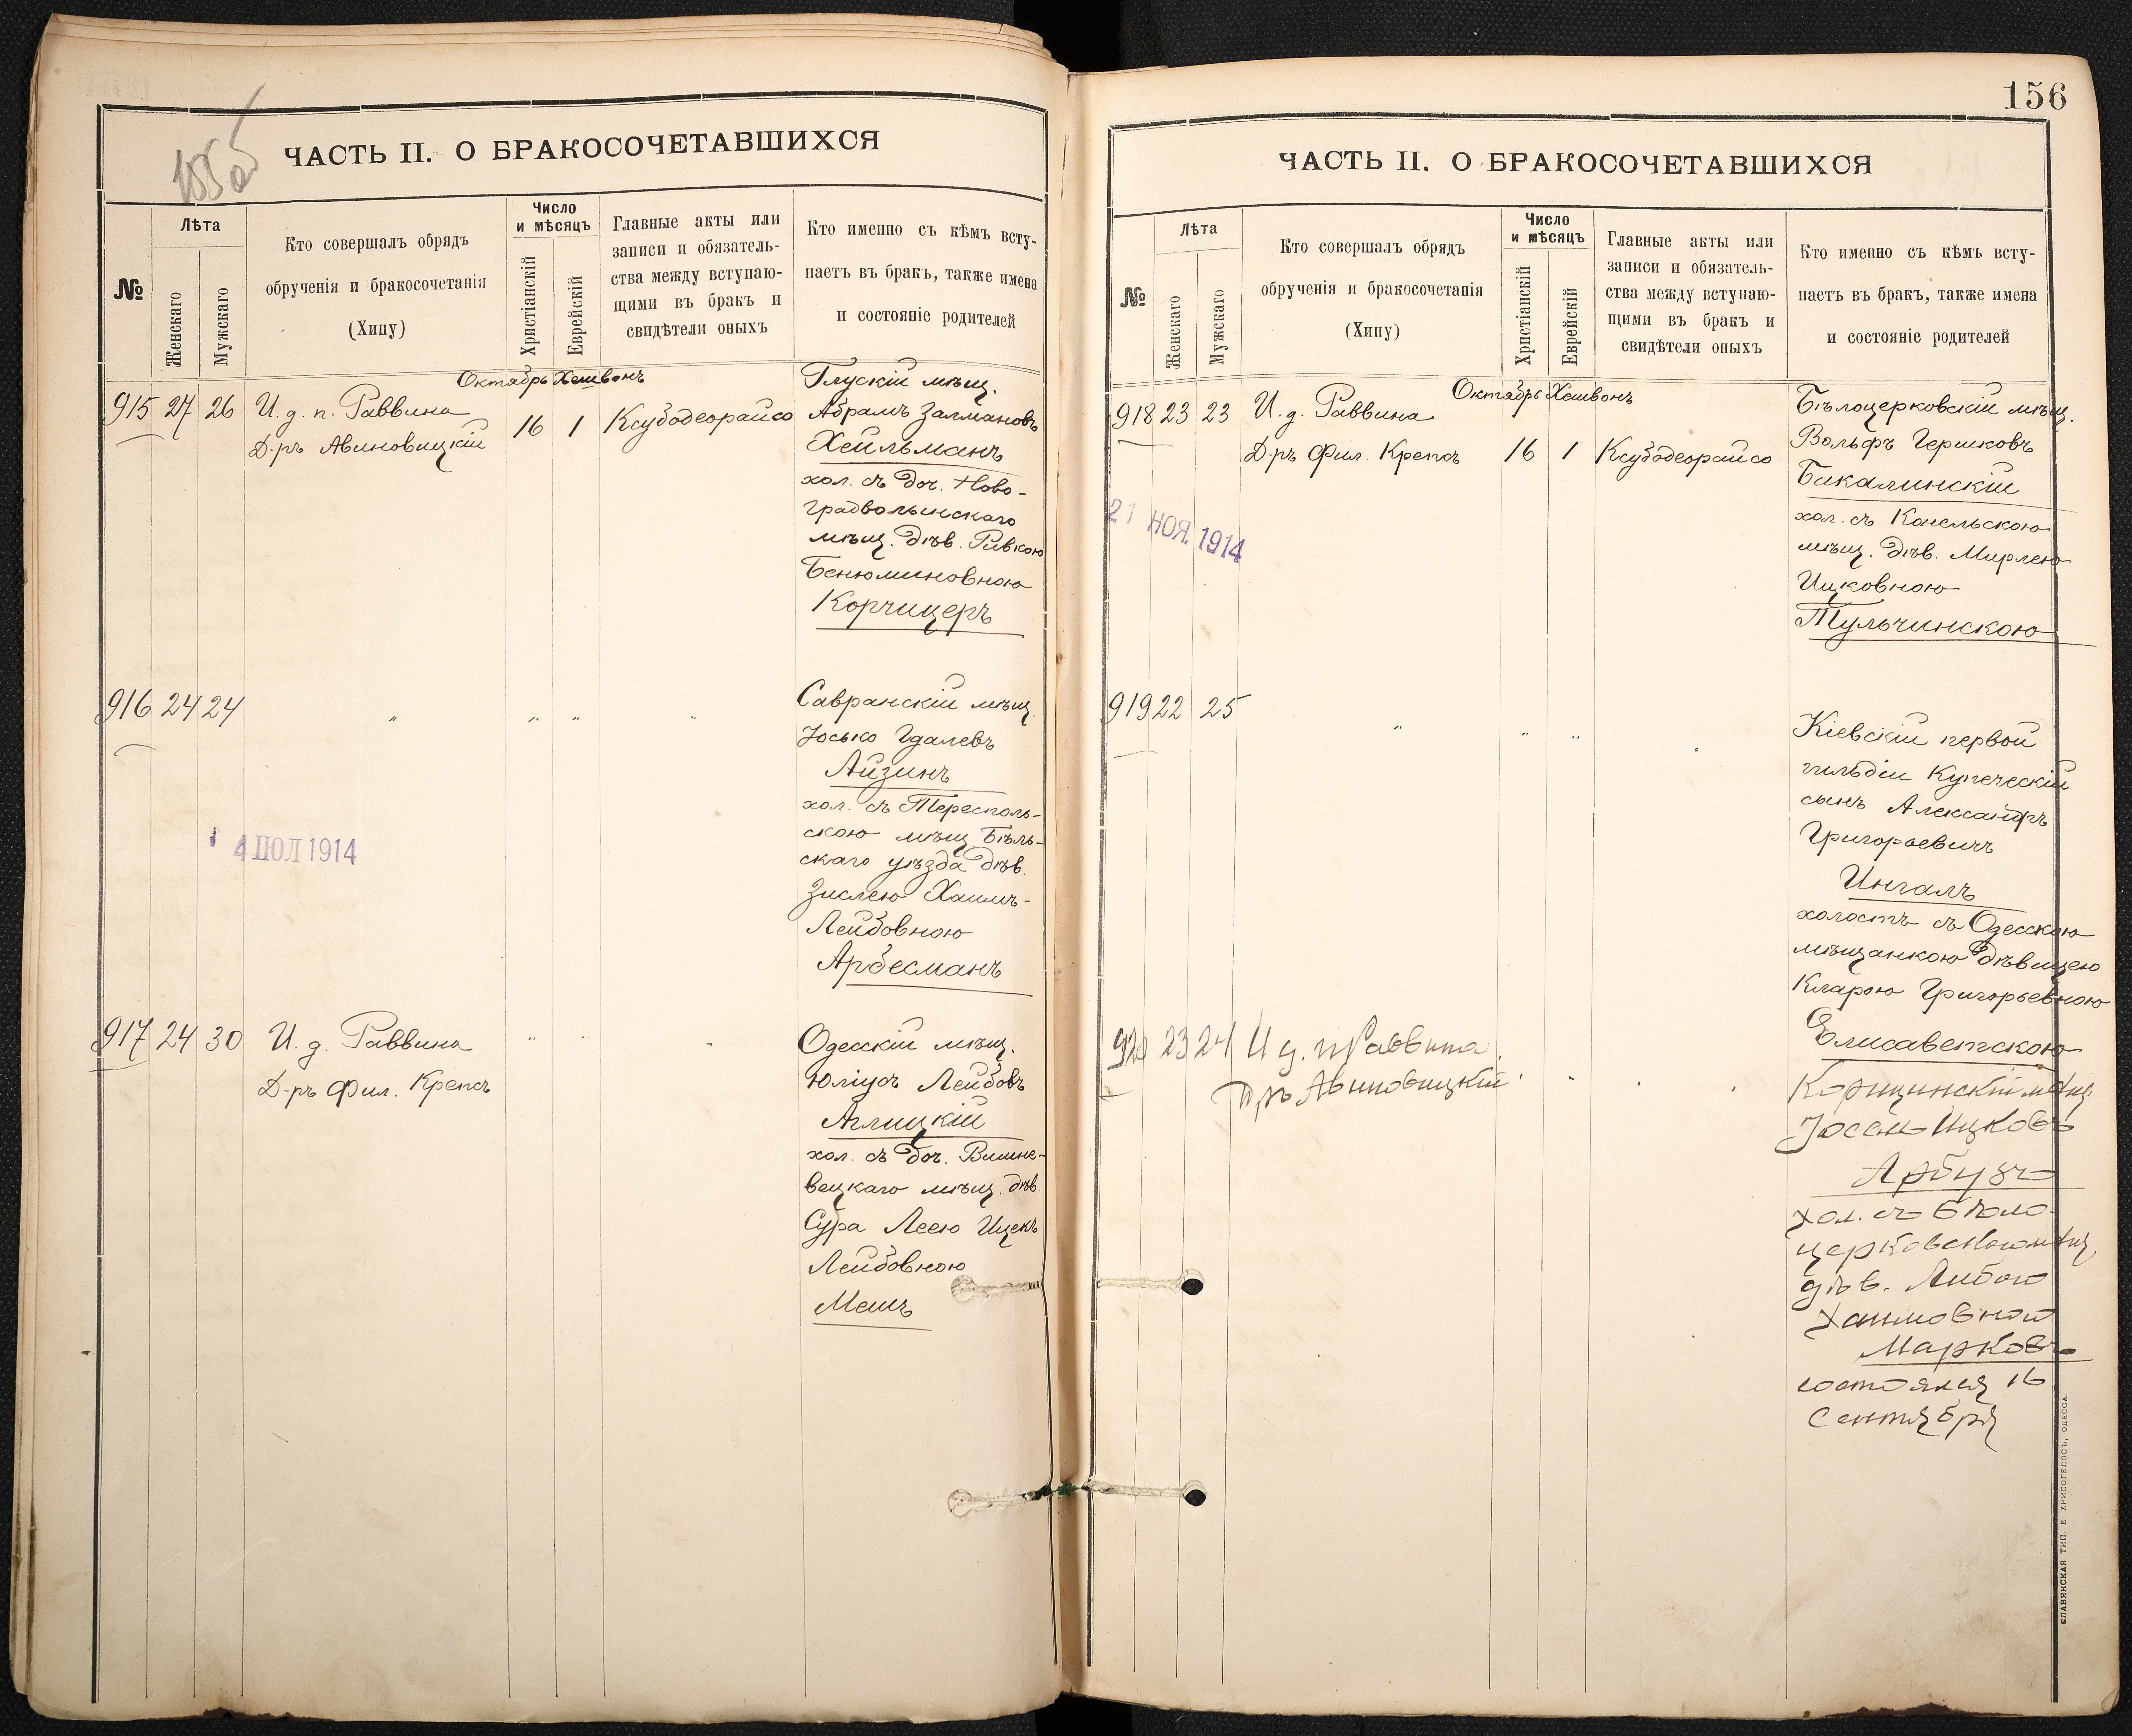 155об
ЧАСТЬ II. О БРАКОСОЧЕТАВШИХСЯ
№
Лѣта
Женскаго
Мужскаго
Кто совершалъ обрядъ
обрученія и бракосочетанія
(Хипу)
Число
и мѣсяцъ
Христіанскій
Еврейскій
Главные акты или
записи и обязатель-
ства между вступаю-
щими въ бракъ и
свидѣтели оныхъ
Кто именно съ кѣмъ всту-
паетъ въ бракъ, также имена
и состояніе родителей
Октябрь Хешвонъ
915 27 26 И. д. п. Раввина
Д-ръ Авиновицкій
16 1 Ксубодеорайсо
Глускій мѣщ.
Абрамъ Залмановъ
Хейльманъ
хол. съ доч. Ново-
градволынскаго
мѣщ. дѣв. Ривкою
Бенюминовною
Корчицеръ
916 24 24 " " " "
Савранскій мѣщ.
Іосько Гдалевъ
Айзинъ
хол. съ Тересполь-
скою мѣщ. Бѣль-
скаго уѣзда дѣв.
Зислею Хаимъ-
Лейбовною
Арбесманъ
4 ІЮЛ 1914
917 24 30 И. д. Раввина
Д-ръ Фил. Крепсъ
Одесскій мѣщ.
Юліусъ Лейбовъ
Аглицкій
хол. съ доч. Вишне-
вецкаго мѣщ. дѣв.
Сура Леею Ицекъ
Лейбовною
Мешъ
156
ЧАСТЬ II. О БРАКОСОЧЕТАВШИХСЯ
№
Лѣта
Женскаго
Мужскаго
Кто совершалъ обрядъ
обрученія и бракосочетанія
(Хипу)
Число
и мѣсяцъ
Христіанскій
Еврейскій
Главные акты или
записи и обязатель-
ства между вступаю-
щими въ бракъ и
свидѣтели оныхъ
Кто именно съ кѣмъ всту-
паетъ въ бракъ, также имена
и состояніе родителей
Октябрь Хешвонъ
918 23 23 И. д. Раввина
Д-ръ Фил. Крепсъ
16 1 Ксубодеорайсо
Бѣлоцерковскій мѣщ.
Вольфъ Гершковъ
Бакалинскій
хол. съ Конельскою
мѣщ. дѣв. Мирлею
Ицковною
Тульчинскою
21 НОЯ. 1914
919 22 25 " " " "
Кіевскій первой
гильдіи Купеческій
сынъ Александръ
Григорьевичъ
Ингалъ
холостъ съ Одесскою
мѣщанкою дѣвицею
Кларою Григорьевною
Елисаветскою
920 23 24 И д. п Раввина
Д-ръ Авиновицкій
мѣщ.
Ицковъ
Арбузъ
хол. съ Бѣло-
церковскою мѣщ.
дѣв. Либою
Хаимовной
Марковъ
состоялся 16
Сентября
СЛАВЯНСКАЯ ТИП. Е. ХРИСОГЕЛОСЪ, ОДЕССА.